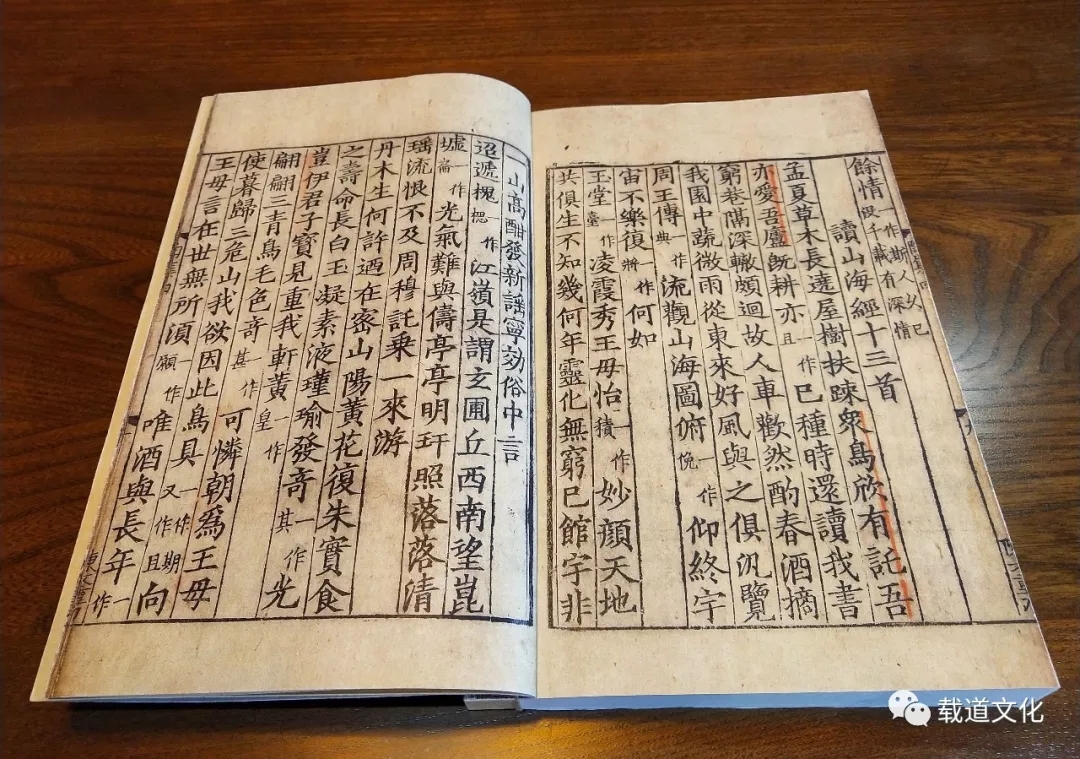 餘情一作斯人久已沒千載有深情
讀山海經十三首
孟夏草木長遶屋樹扶踈衆鳥欣有託吾
亦愛吾廬旣耕亦一作且已種時還讀我書
窮巷隔深轍頗迴故人車歡然酌春酒摘
我園中蔬微雨從東來好風與之俱汎覽
周王傳一作典流觀山海圖俯一作俛仰終宇
宙不樂復一作將何如
玉堂一作臺凌霞秀王母怡一作積妙顔天地
共俱生不知幾何年靈化無窮已館宇非
一山高酣發新謡寧効俗中言
迢遞槐一作江嶺是謂玄圃丘西南望崑
墟一作光氣難與儔亭亭明玕照落落清
瑶流恨不及周穆託乗一來游
丹木生何許迺在密山陽黃花復朱實食
之壽命長白玉凝素液瑾瑜發竒一作其光
豈伊君子寳見重我軒黃一作皇
翩翩三青鳥毛色竒一作甚可憐朝爲王母
使暮歸三危山我欲因此鳥具一作期又作且向
王母言在世無所須一作願唯酒與長年一作
载道文化